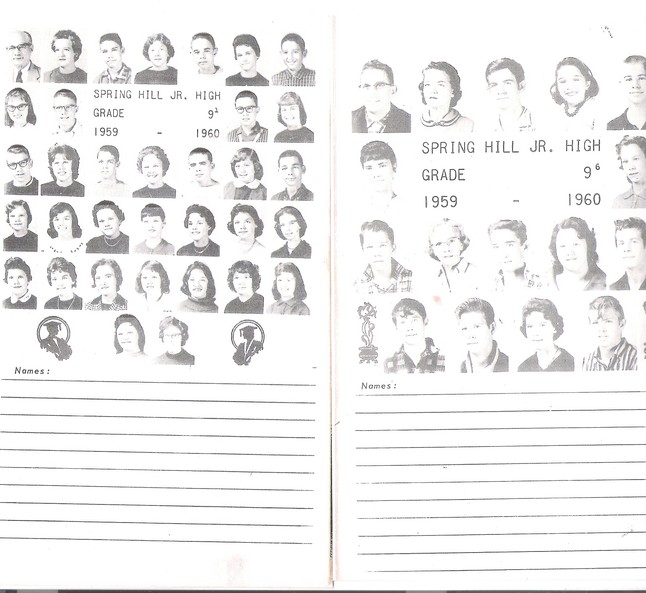 SPRING HILL JR. HIGH
GRADE 9¹
1959 - 1960
Names:
SPRING HILL JR. HIGH
GRADE 9⁶
1959 - 1960
Names: